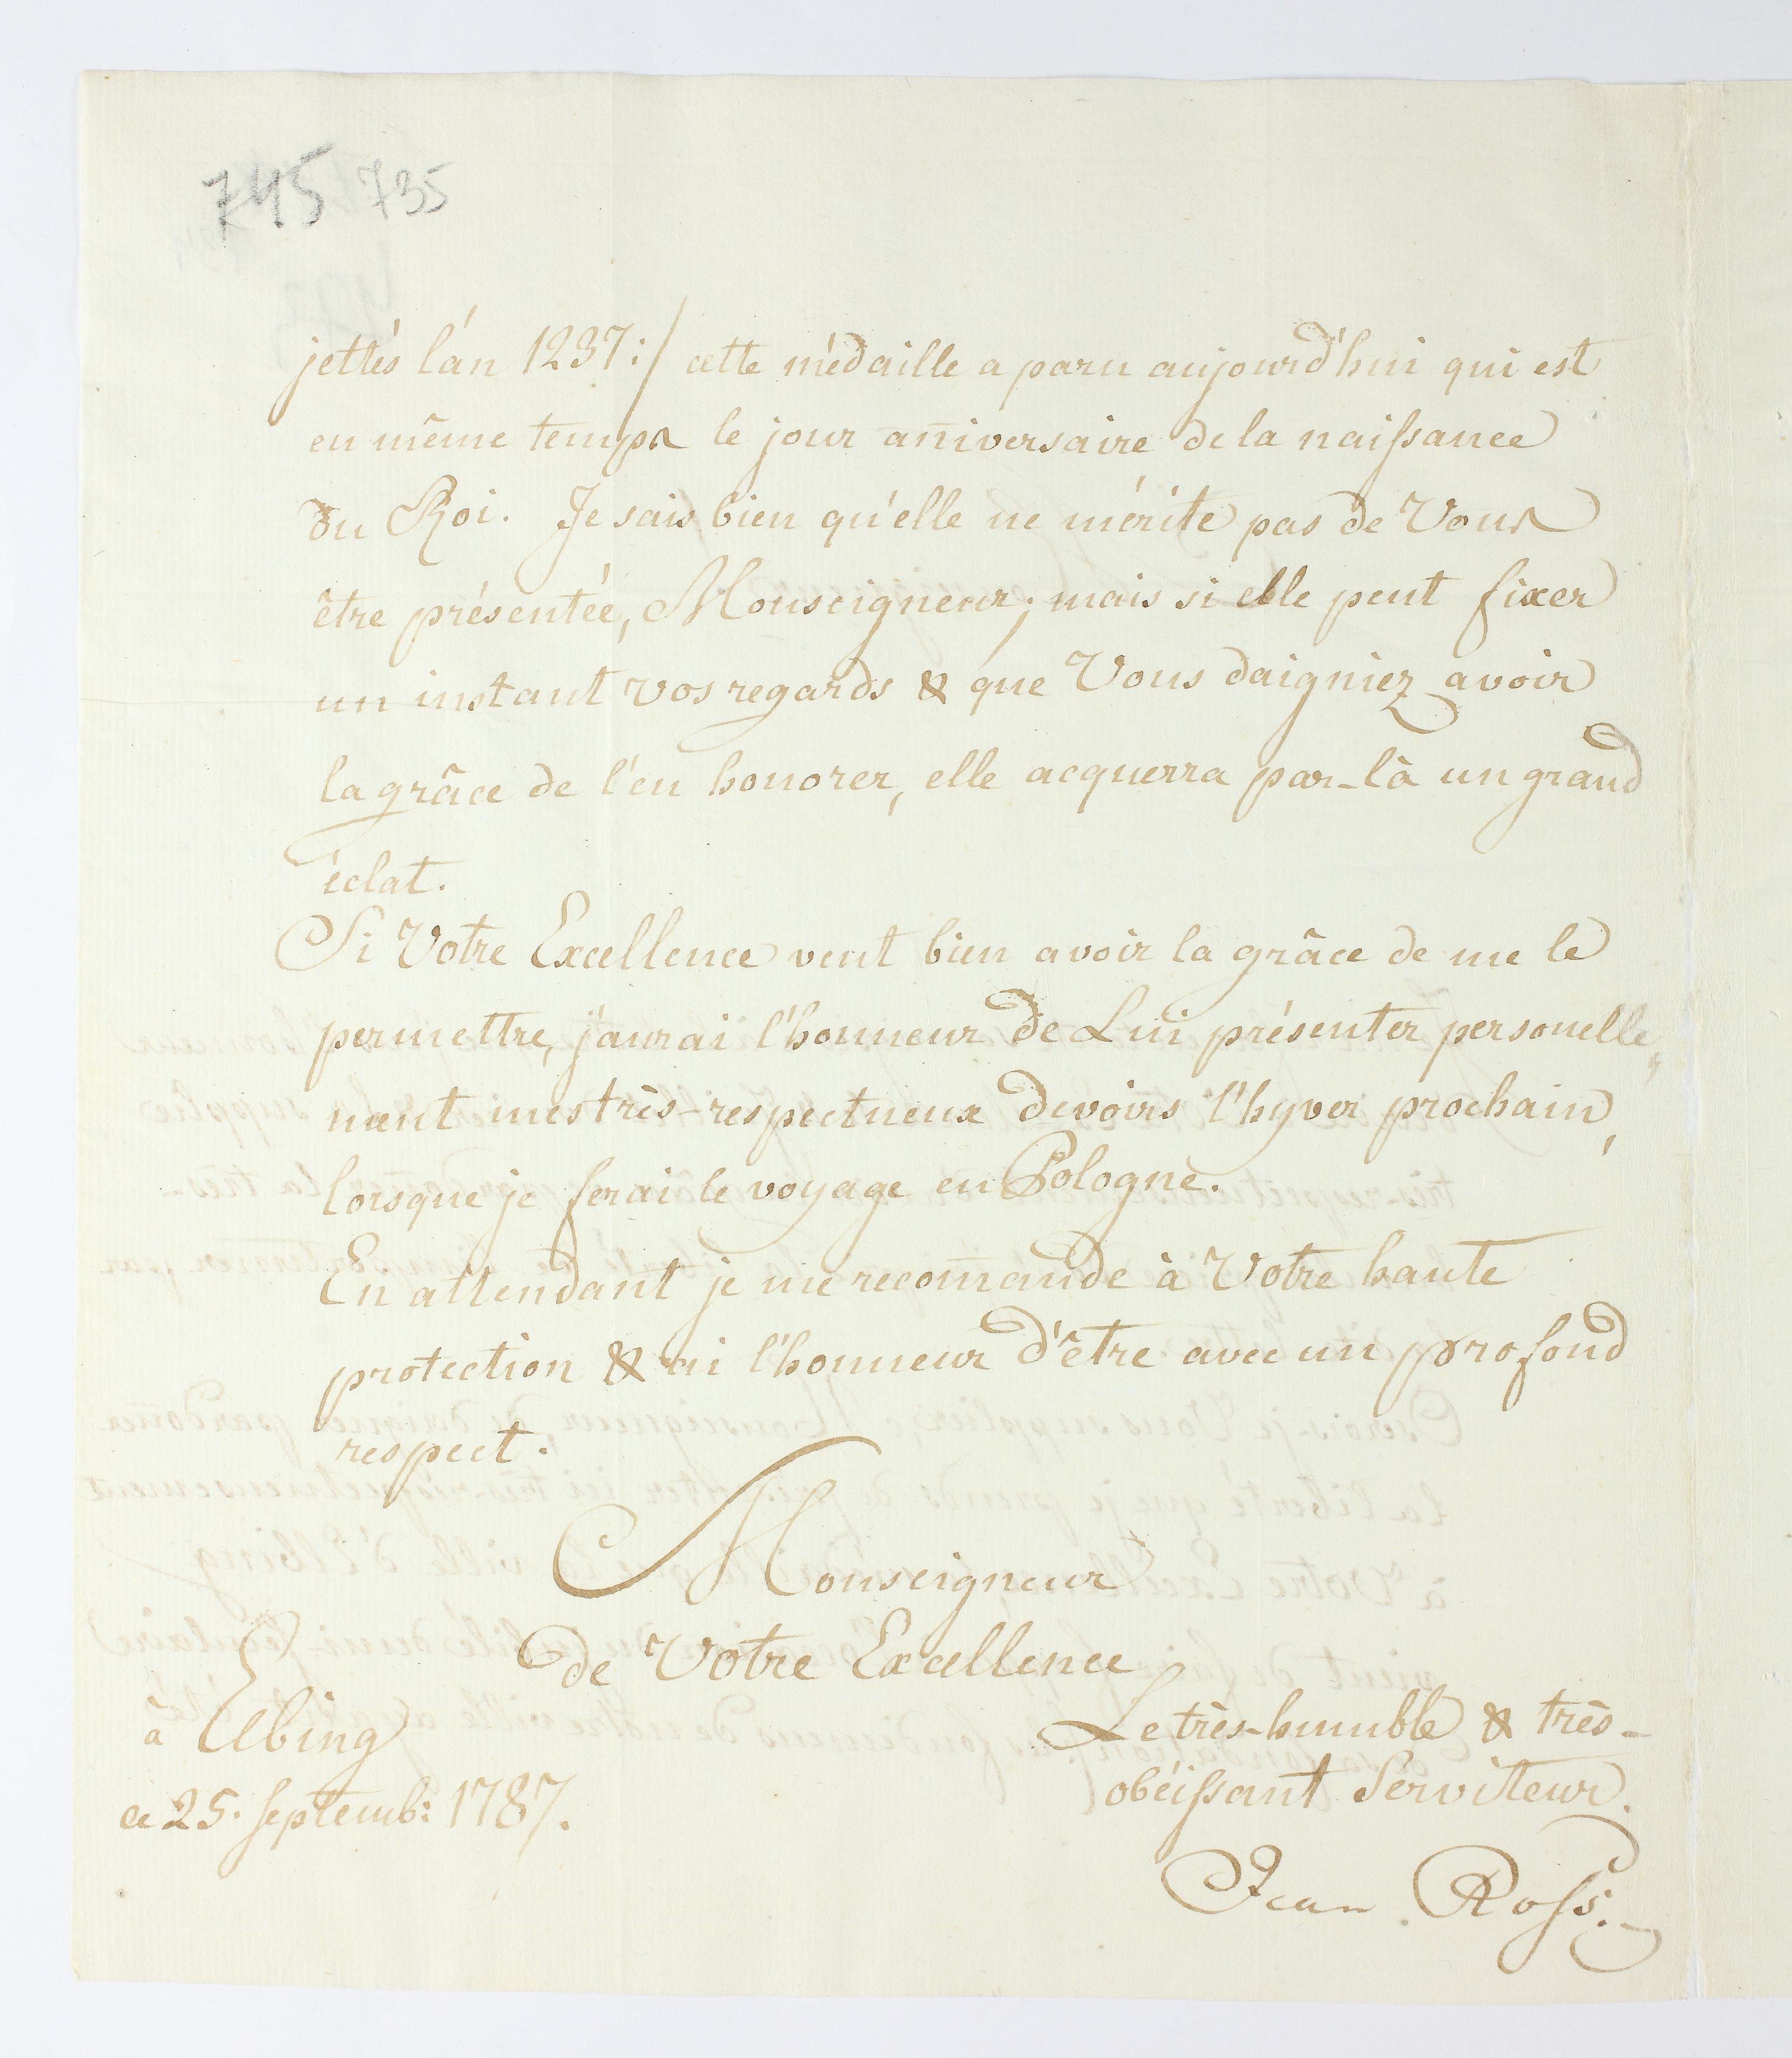 745 735
jettés l'an 1237:/ cette médaille a paru aujourd'hui qui est
en même temps le jour añiversaire de la naiſsance
du Roi. Je sais bien qu'elle ne mérite pas de Vous
être présentée, Monseigneur; mais si elle peut fixer
un instant vos regards & que Vous daigniez avoir
la grâce de l'en honorer, elle acquerra par-là un grand
éclat.
Si Votre Excellence veut bien avoir la grâce de me le
permettre, j'aurai l'honneur de Lui présenter personelle„
ment mes très-respectueux devoirs l'hyver prochain,
lorsque je ferai le voyage en Pologne.
En attendant je me recom̃ande à Votre haute
protection & ai l'honneur d'être avec un profond
respect.
Monseigneur
de Votre Excellence
à Elbing
ce 25. Septemb: 1787.
Le très-humble & très-
obéiſsant Serviteur.
Jean Roſs.